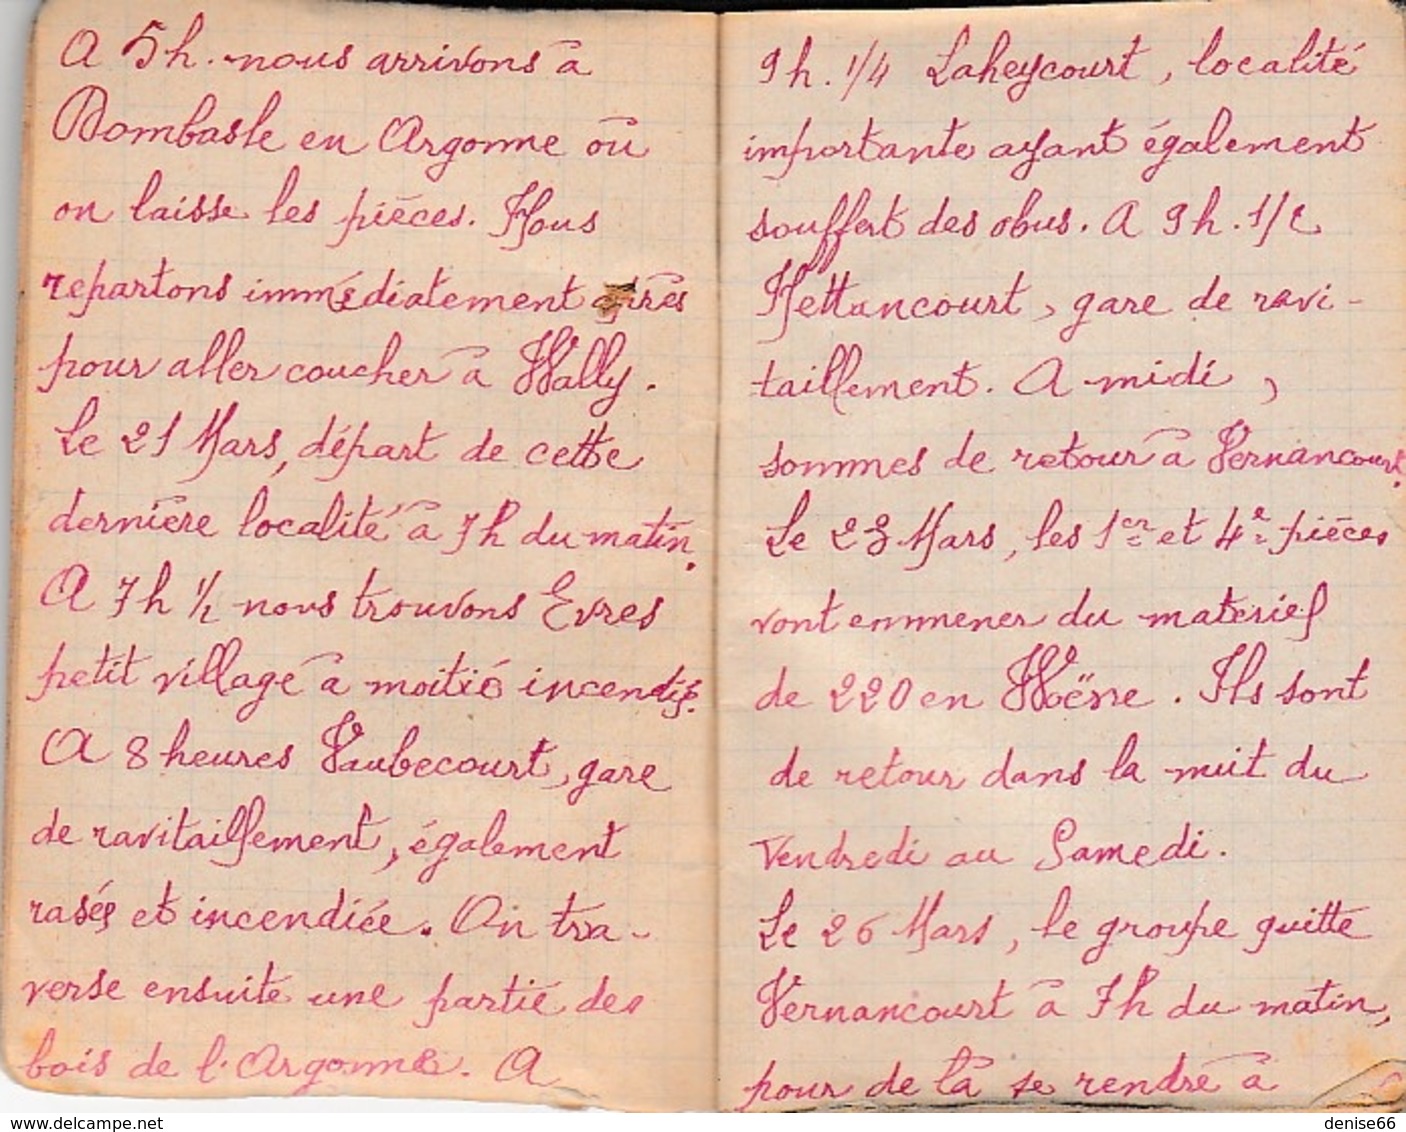 A 5h. nous arrivons à
Dombasle en Argonne où
on laisse les pièces. Nous
repartons immédiatement après
pour aller coucher à Wally.
Le 21 Mars, départ de cette
dernière localité à 7h du matin.
A 7h 1/2 nous trouvons Evres
petit village à moitié incendié.
A 8 heures Vaubecourt, gare
de ravitaillement, également
rasée et incendiée. On tra-
verse ensuite une partie des
bois de l'Argonne. A
9h. 1/4 Laheycourt, localité
importante ayant également
souffert des obus. A 9h. 1/2
Nettancourt, gare de ravi-
taillement. A midi,
sommes de retour à Vernancourt.
Le 23 Mars, les 1er et 4e pièces
vont emmener du matériel
de 220 en Woëvre. Ils sont
de retour dans la nuit du
Vendredi au Samedi.
Le 26 Mars, le groupe quitte
Vernancourt à 7h du matin,
pour de là se rendre à
www.delcampe.net
denise66